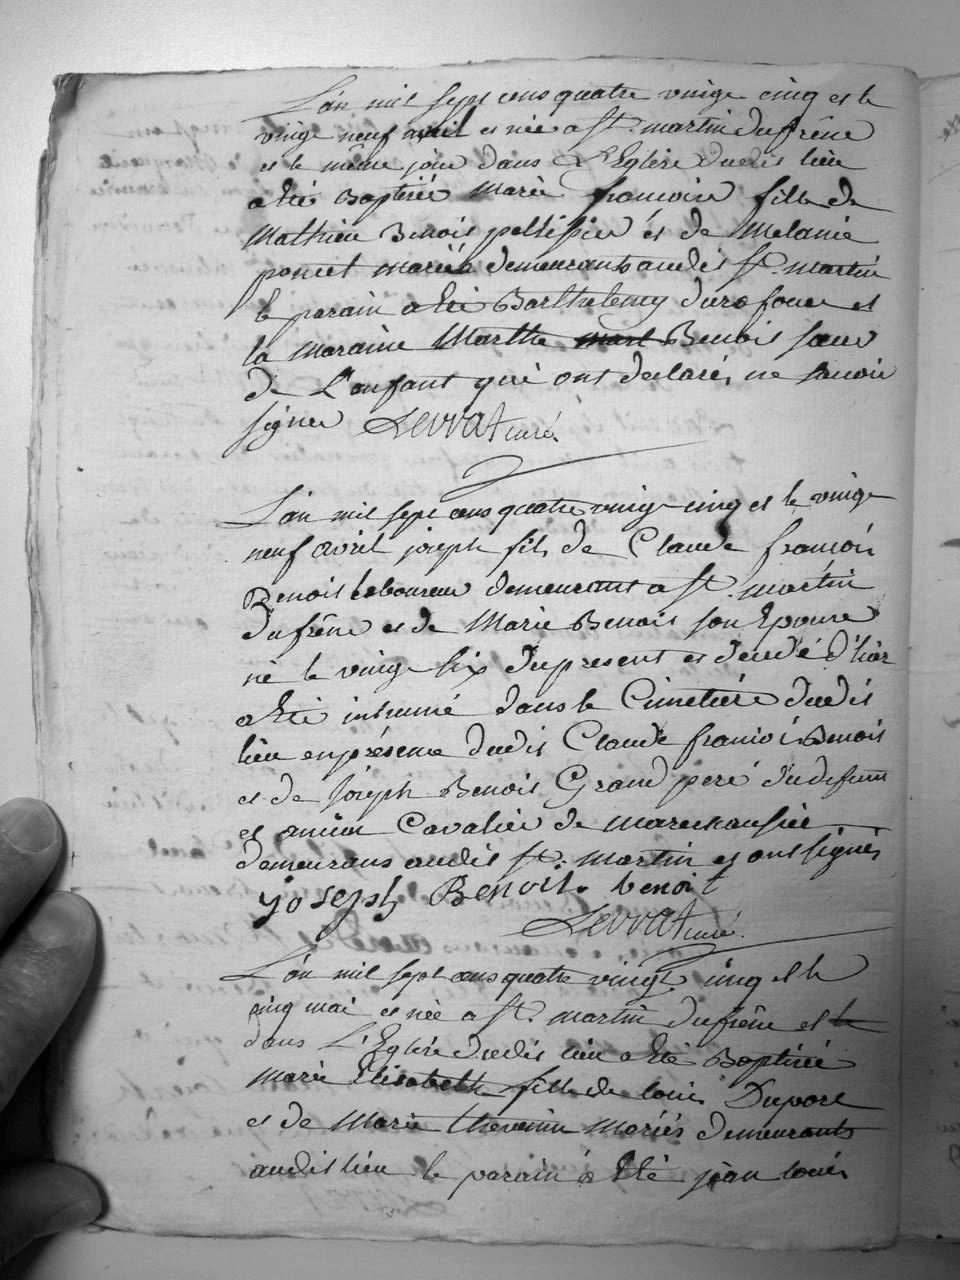 L'an mil sept cens quatre vingt cinq et le
vingt neuf avril est née a St. martin dufrêne
et le même jour dans L'Eglise dudit lieu
a Eté Baptisée Marie francoise fille de
Mathieu Benoit pellissier et de Melanie
poncet mariés demeurants audit St. martin
le parain a été Barthelemy et
la Maraine Marthe Benoit sœur
de L'enfant qui ont declarés ne savoir
signer Levrat curé.
L'an mil sept cens quatre vingt cinq et le vingt
neuf avril joseph fils de Claude francois
Benoit laboureur demeurant a St. martin
dufrêne et de Marie Benoit son Epouse
né le vingt six du present et decedé d'hier
a Eté inhumé dans le Cimetiére dudit
lieu en présence dudit Claude francois Benoit
et de Joseph Benoit Grand peré du defunt
et ancien Cavalier de marechaussée
demeurans audit St. martin et ont signés
yoseph Benoit. benoit
Levrat curé.
L'an mil sept cens quatre vingt cinq et le
cinq mai est née a St. martin dufrêne et le
dans L'Eglise dudit lieu a Eté Baptisée
Marie Elisabeth fille de louis Duport
et de Marie thevenin Mariés demeurants
audit lieu le parain a Eté jean louis